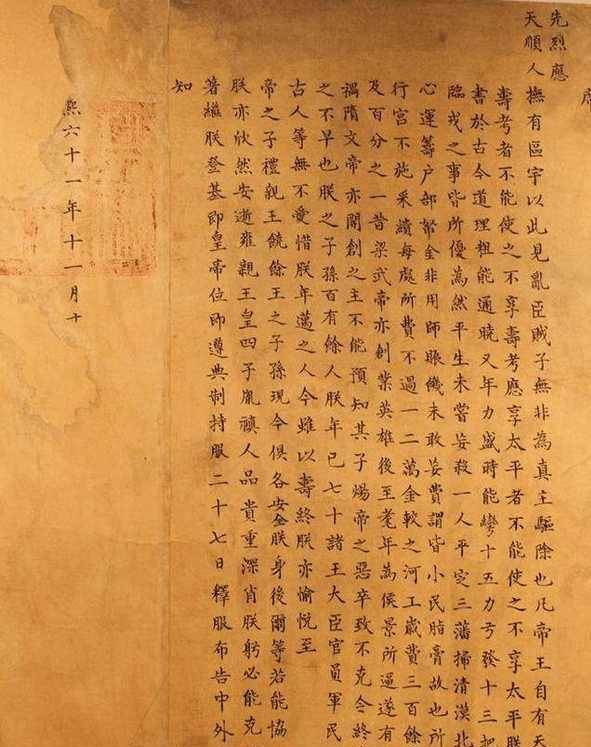 先烈應
天順人撫有區宇以此見亂臣賊子無非為真主驅除也凡帝王自有天
壽考者不能使之不享壽考應享太平者不能使之不享太平朕
書於古今道理粗能通曉又年力盛時能彎十五力弓發十三把
臨戎之事皆所優為然平生未嘗妄殺一人平定三藩掃清漠北
心運籌戶部帑金非用師賑饑未敢妄費謂皆小民脂膏故也所
行宮不施采繢每處所費不過一二萬金較之河工歲費三百餘
及百分之一昔梁武帝亦創業英雄後至耄年為侯景所逼遂有
禍隋文帝亦開創之主不能預知其子煬帝之惡卒致不克令終
之不早也朕之子孫百有餘人朕年已七十諸王大臣官員軍民
古人等無不愛惜朕年邁之人今雖以壽終朕亦愉悅至
帝之子禮親王饒餘王之子孫現今俱各安全朕身後爾等若能協
朕亦欣然安逝雍親王皇四子胤禛人品貴重深肖朕躬必能克
著繼朕登基即皇帝位即遵典制持服二十七日釋服布告中外
知
熙六十一年十一月十